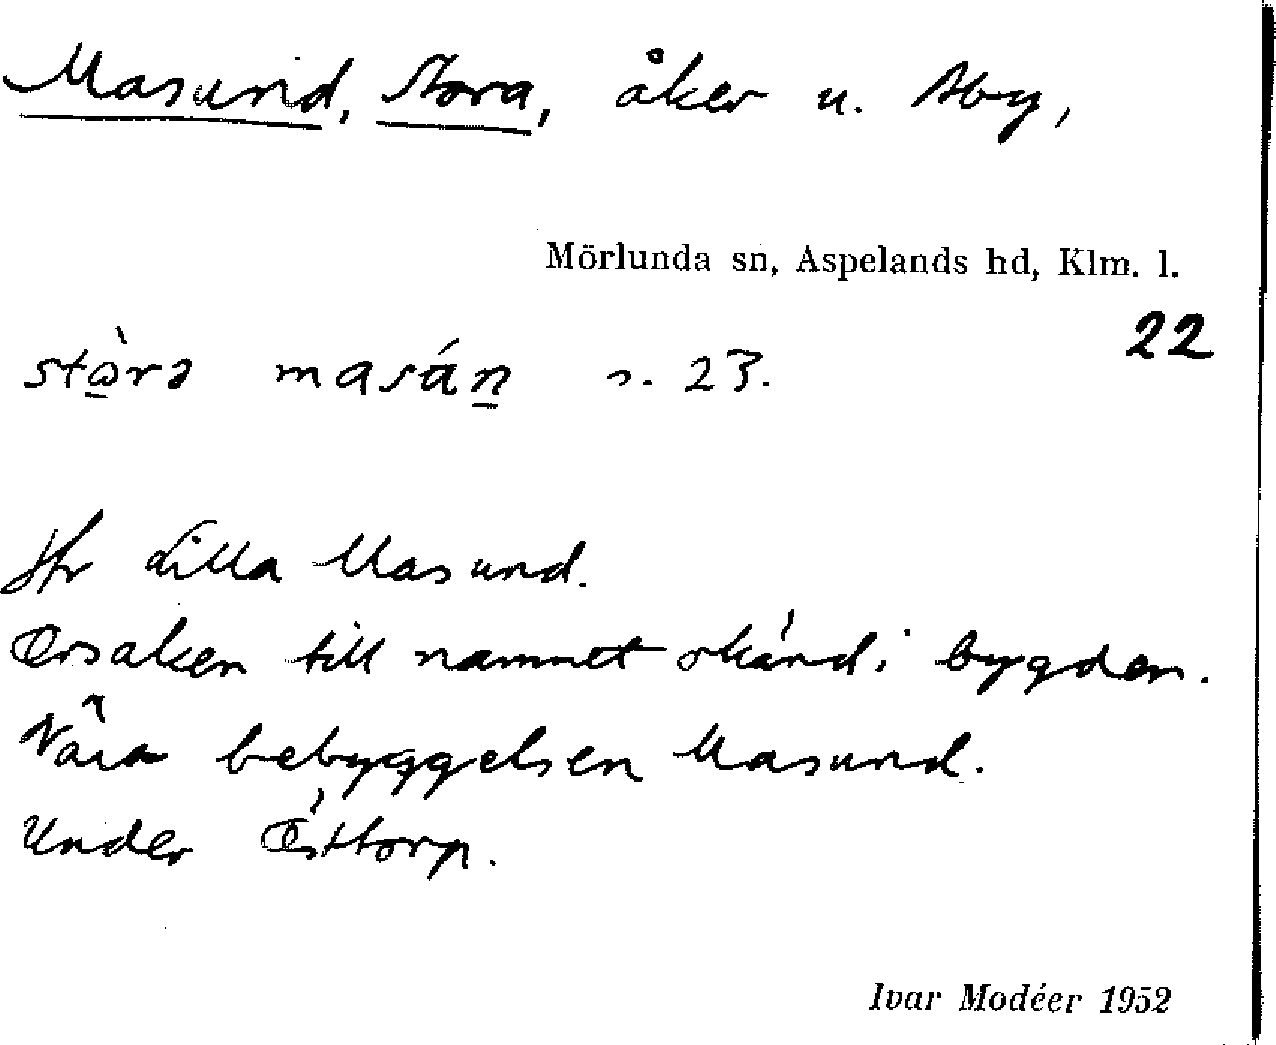 Masund, Stora, åker u. Åby,
Mörlunda sn, Aspelands hd, Klm. l.
22
stòra masán s. 23.
Jfr Lilla Masund.
Orsaken till namnet okänd i bygden.
Nära bebyggelsen Masund.
Under Östtorp.
Ivar Modéer 1952